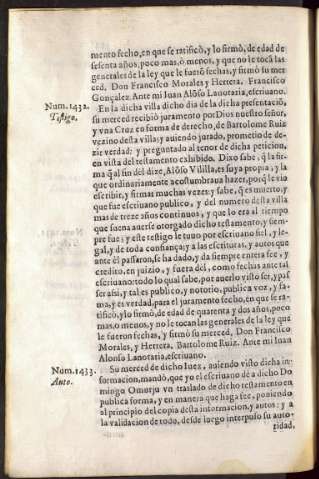 mento fecho, en que se ratificò, y lo firmò, de edad de
sesenta años, poco mas, ò menos, y que no le tocã las
generales de la ley que le fuerõ fechas, y firmò su mer
ced, Don Francisco Morales y Herrera. Francisco
Gonçalez. Ante mi Juan Alõso Lanotaria, escriuano.
Num. 1432.
Testigo.
En la dicha villa dicho dia de la dicha presentaciõ,
su merced recibiò juramento por Dios nuestro señor,
y vna Cruz en forma de derecho, de Bartolome Ruiz
vezino desta villa; y auiendo jurado, prometio de de-
zir verdad: y preguntado al tenor de dicha peticion,
en vista del testamento exhibido. Dixo sabe, q̃ la fir-
ma q̃ al fin del dize, Alõso Vililla, es suya propia; y la
que ordinariamente acostumbraua hazer, porq̃ le vio
escribir, y firmar muchas vezes: y sabe, q̃ es muerto, y
que fue escriuano publico, y del numero desta villa
mas de treze años continuos, y que lo era al tiempo
que suena auerse otorgado dicho testamento, y siem-
pre fue; y este testigo le tuuo por escriuano fiel, y le-
gal, y de toda confiança; y a las escrituras, y autos que
ante èl passaron, se ha dado, y da siempre entera fee, y
credito, en juizio, y fuera del, como fechas ante tal
escriuano: todo lo qual sabe, por auerlo visto ser, y pas
ser assi, y tal es publico, y notorio, publica voz, y fa-
ma, y es verdad, para el juramento fecho, en que se ra-
tificò, y lo firmò, de edad de quarenta y dos años, poco
mas, o menos, y no le tocan las generales de la ley que
le fueron fechas, y firmò su merced, Don Francisco
Morales, y Herrera, Bartolome Ruiz. Ante mi Iuan
Alonso Lanotaria, escriuano.
Num. 1433.
Auto.
Su merced de dicho Iuez, auiendo visto dicha in-
formacion, mandò, que yo el escriuano dè a dicho Do
mingo Omorju vn traslado de dicho testamento en
publica forma, y en manera que haga fee, poniendo
al principio del copia desta informacion, y autos: y a
la validacion de todo, desde luego interpuso su auto-
ridad,